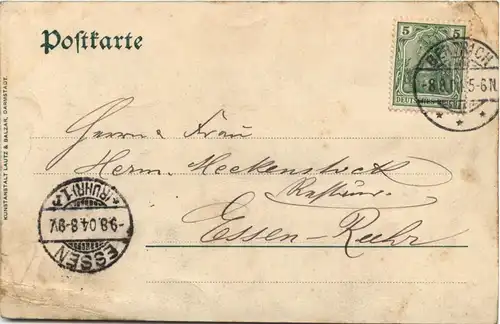 Postkarte
5
DEUTSCHES REICH
-8.8.04. 5-6N.
* * *
Herrn & Frau
Herm. Meckenstock
Essen-Ruhr
ESSEN
-9.8.04.8-9V.
* (RUHR) 1 *
KUNSTANSTALT LAUTZ & BALZAR, DARMSTADT.